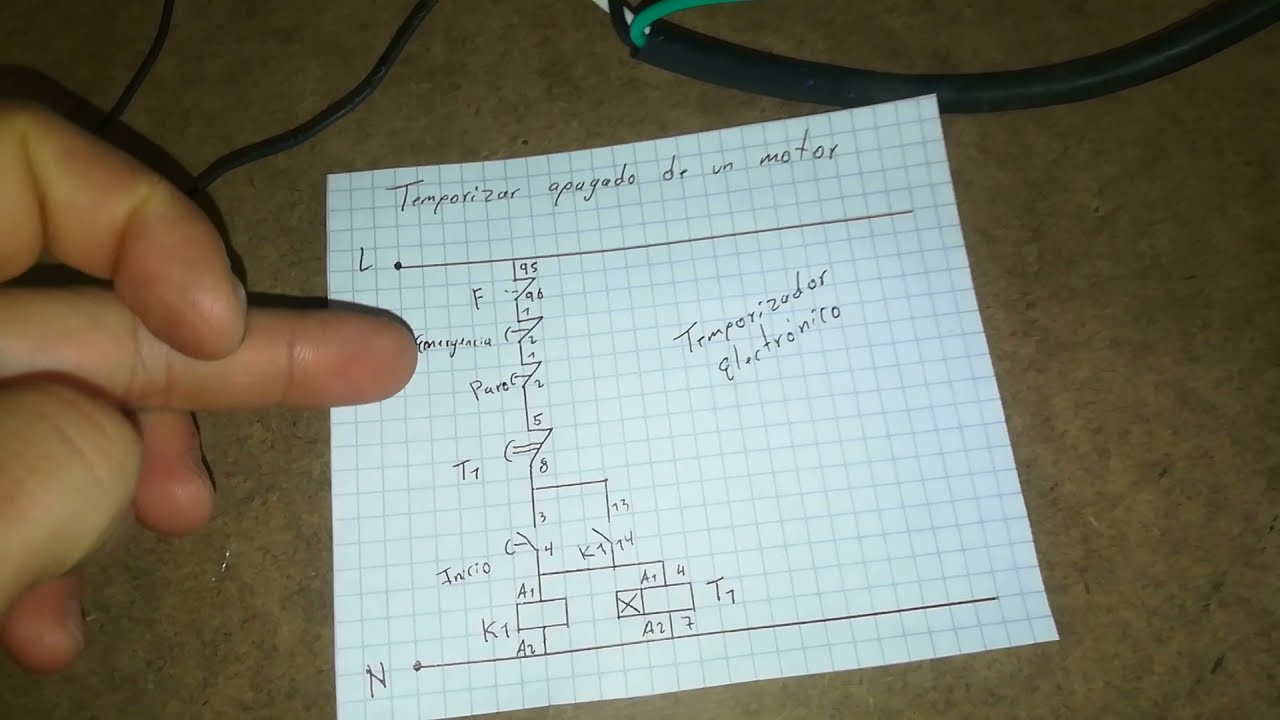 Temporizar apagado de un motor
L
95
F 96
1
Emergencia 2
1
Paro 2
5
T1 8
Temporizador
electrónico
3 13
Inicio 4 K1 14
A1 A1 4
K1 T1
A2 A2 7
N